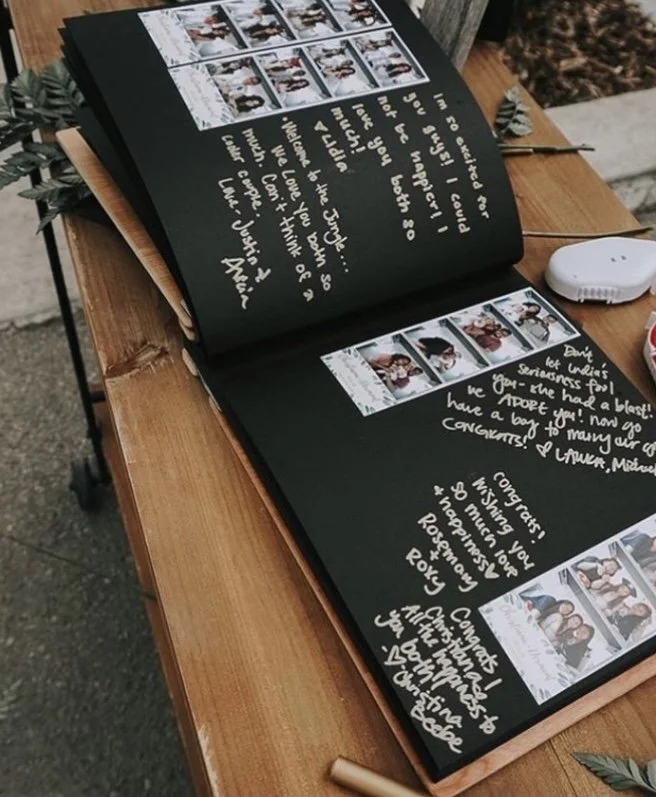 Im so excited for
you guys! I could
not be happier! I
love you both so
much!
♥ Lidia
"Welcome to the Jungle...
We Love you both so
much. Can't think of a
cuter couple.
Love, Justin &
Don't
let India's
seriousness fool
you - she had a blast!
we ADORE you! now go
have a boy to marry our
CONGRATS! ♡ LAURA, Michael
Congrats!
Wishing you
so much love
+ happiness ♥
Rosemary
+
Roxy
Congrats!
All the happiness to
you both!
♡ Christina